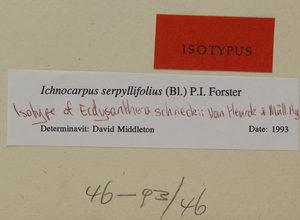 ISOTYPUS
Ichnocarpus serpyllifolius (Bl.) P.I. Forster
Isotype of Ecdysanthera schneckii Van Heurck & Müll. Arg
Determinavit: David Middleton Date: 1993
46-93/46